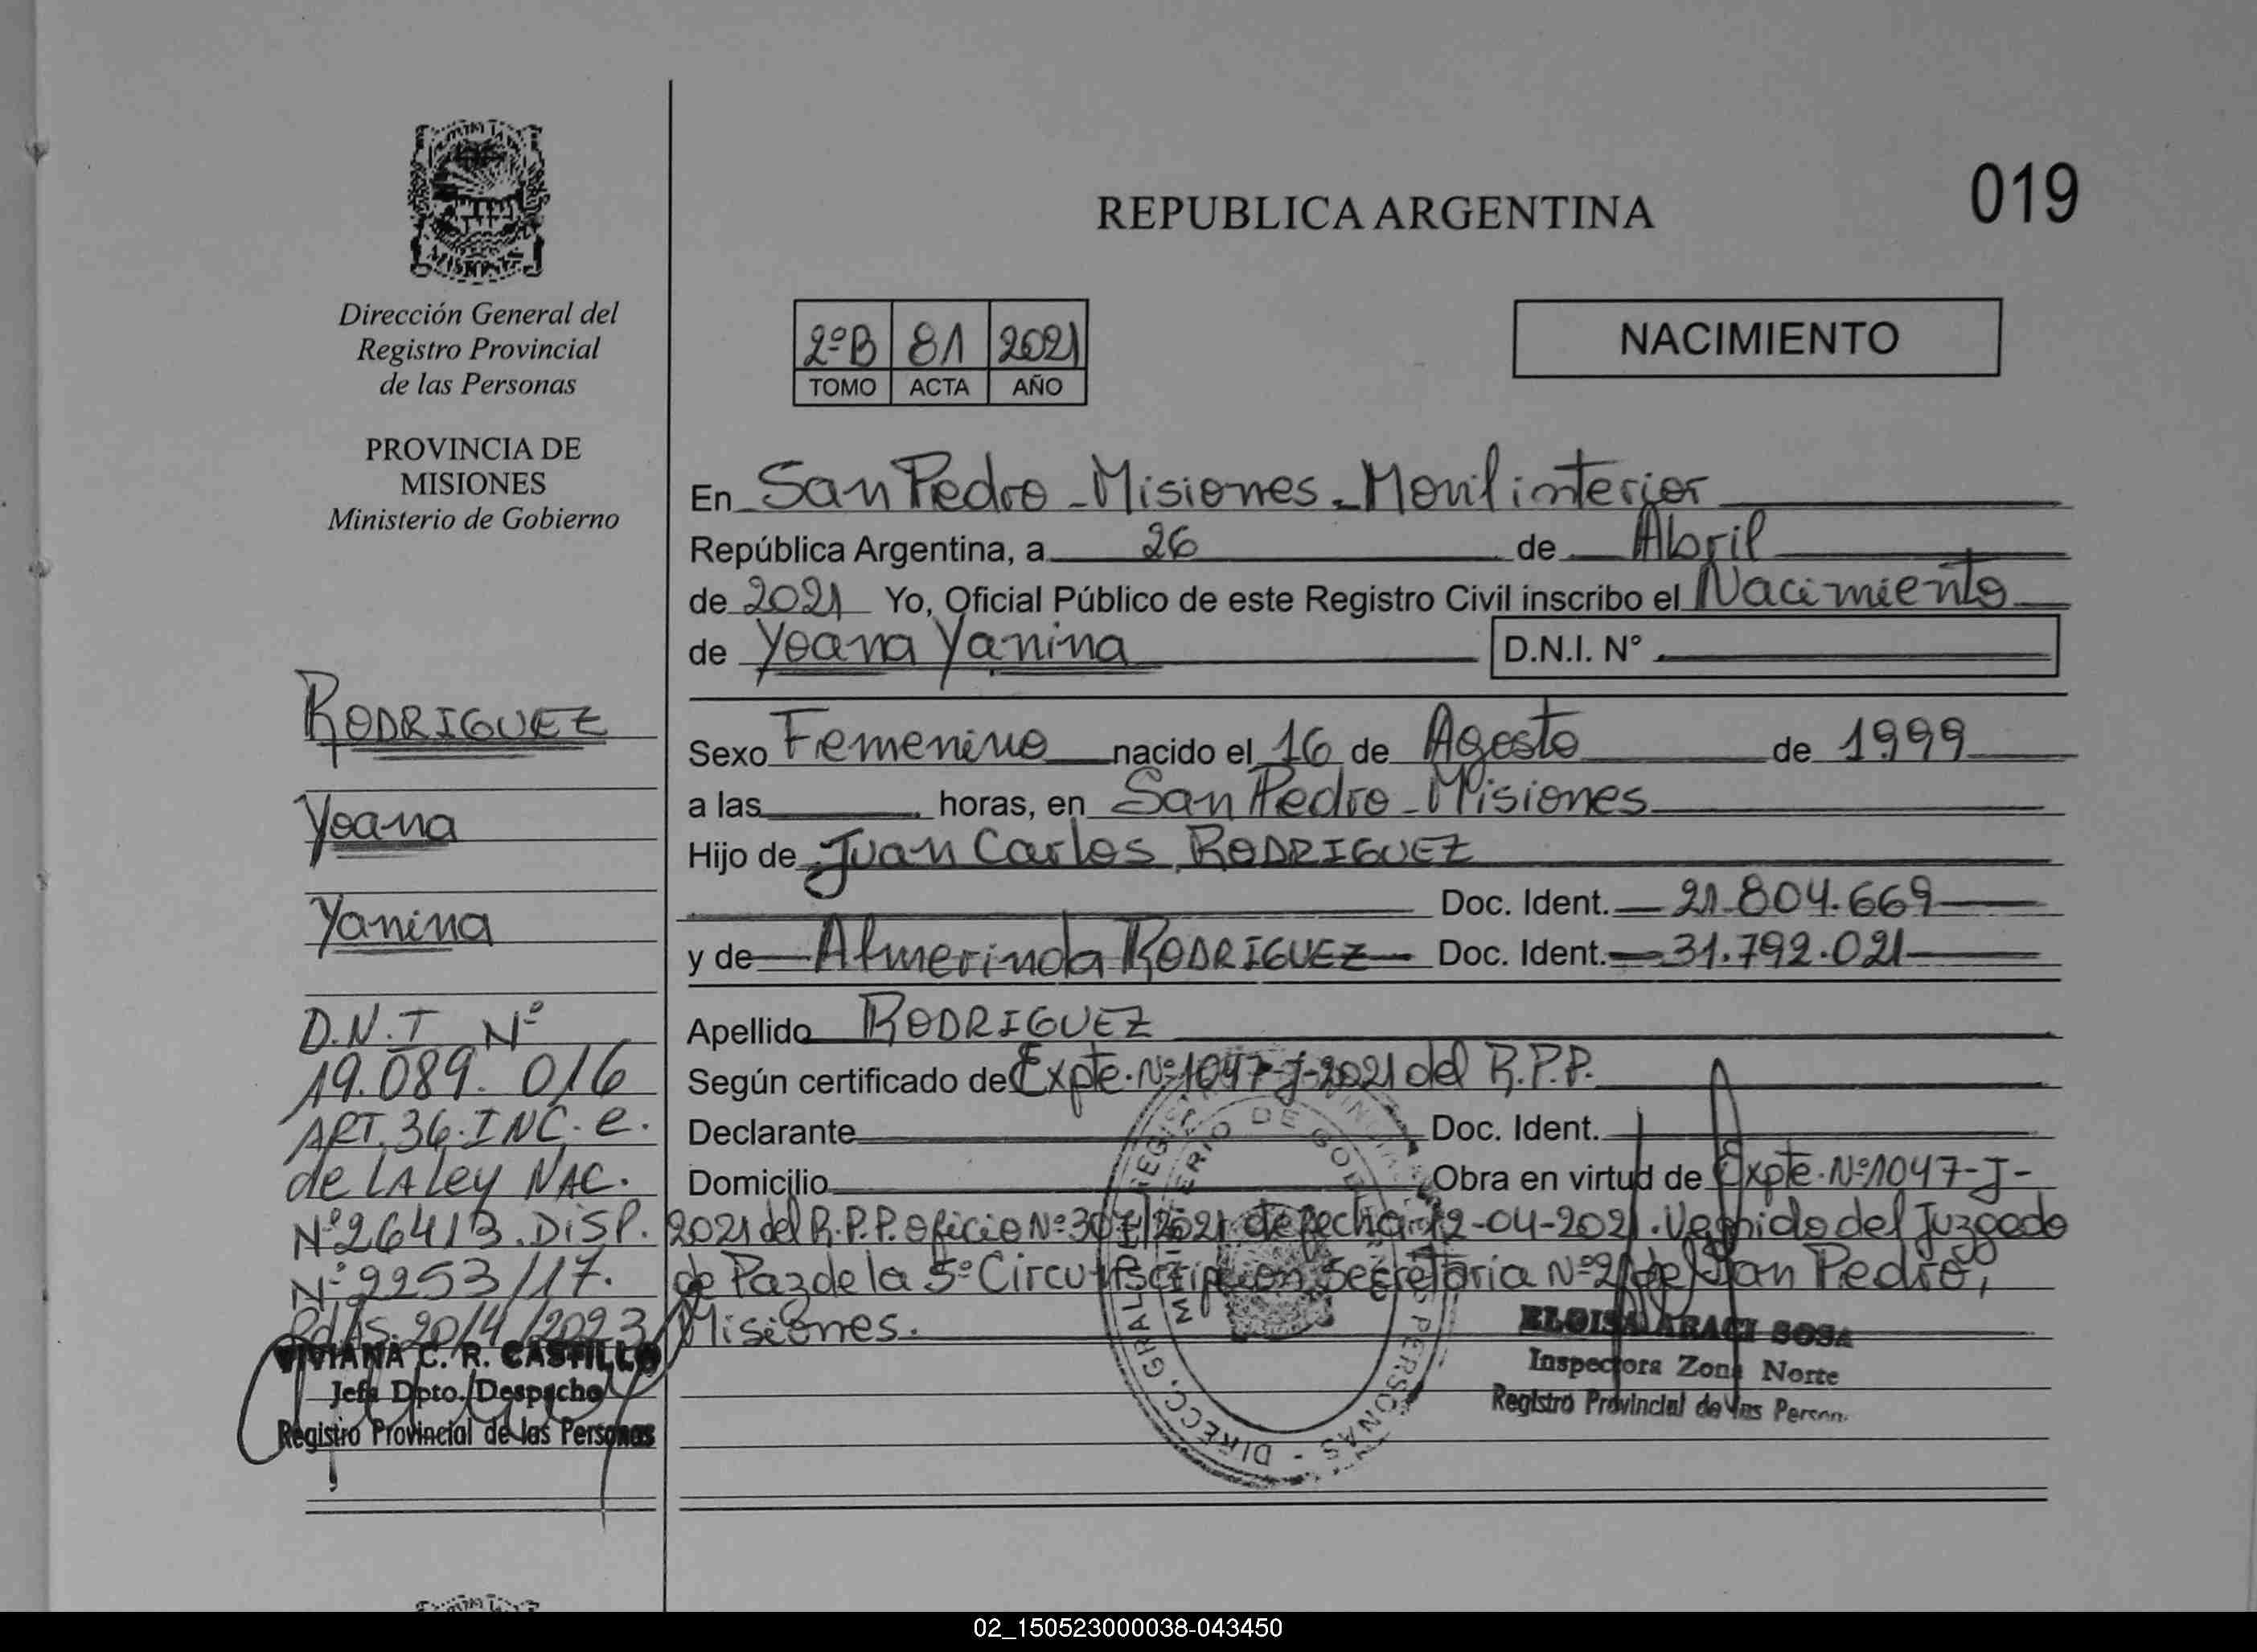 019
REPUBLICA ARGENTINA
Dirección General del
Registro Provincial
de las Personas
PROVINCIA DE
MISIONES
Ministerio de Gobierno
RODRIGUEZ
Yoana
Yanina
D.N.I Nº
19.089.016
ART. 36. INC. e.
de LA Ley NAC.
Nº 26413. DISP.
Nº 2253/17.
Pdas. 20/4/2023
VIVIANA C. R. CASTILLO
Jefa Dpto. Despacho
Registro Provincial de las Personas
2ºB 81 2021
TOMO ACTA AÑO
NACIMIENTO
En San Pedro - Misiones - Movil interior
República Argentina, a 26 de Abril
de 2021 Yo, Oficial Público de este Registro Civil inscribo el Nacimiento
de Yoana Yanina D.N.I. Nº
Sexo Femenino nacido el 16 de Agosto de 1999
a las horas, en San Pedro - Misiones
Hijo de Juan Carlos RODRIGUEZ
Doc. Ident. 21.804.669
y de Almerinda RODRIGUEZ Doc. Ident. 31.792.021
Apellido RODRIGUEZ
Según certificado de Expte. Nº 1047-J-2021 del R.P.P.
Declarante Doc. Ident.
Domicilio Obra en virtud de Expte. Nº 1047-J-
2021 del R.P.P. oficio Nº 307/2021 de fecha 12-04-2021. Venido del Juzgado
de Paz de la 5º Circunscripcion Secretaria Nº 2 de San Pedro,
Misiones.
ELOISA ARACI SOSA
Inspectora Zona Norte
Registro Provincial de las Person.
02_150523000038-043450